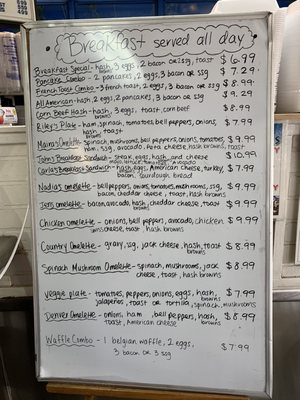 Breakfast served all day
Breakfast Special - hash, 3 eggs, 2 bacon or 2 ssg, toast $6.99
browns
Pancake Combo - 2 pancakes, 2 eggs, 3 bacon or ssg $7.29
French Toast Combo - 3 french toast, 2 eggs, 3 bacon or ssg $8.99
All American - hash, 2 eggs, 2 pancakes, 3 bacon or ssg $9.29
Corn Beef Hash - browns, 3 eggs, toast, corn beef $8.99
hash
Riley's Plate - ham, spinach, tomatoes, bell peppers, onions, $7.99
hash, toast
browns
Omelette - spinach, mushrooms, bell peppers, onions, tomatoes, $9.99
ham, ssg, avocado, feta cheese, hash browns, toast
John's Breakfast Sandwich - steak, eggs, hash, and cheese $10.99
Carla's Breakfast Sandwich - hash, eggs, American cheese, turkey, $7.99
bacon, sourdough bread
Nadia's omelette - bell peppers, onions, tomatoes, mushrooms, ssg, $9.99
bacon, cheddar cheese, toast, hash browns
omelette - bacon, avocado, hash, cheddar cheese, toast $9.99
browns
Chicken omelette - onions, bell peppers, avocado, chicken $9.99
cheese, toast, hash browns
Country Omelette - gravy, ssg, jack cheese, hash, toast $8.99
browns
Spinach Mushroom Omelette - spinach, mushrooms, jack $8.99
cheese, toast, hash browns
Veggie plate - tomatoes, peppers, onions, eggs, hash, $7.99
browns
jalapeños, toast or tortilla, spinach, mushrooms
Denver Omelette - onions, ham, bell peppers, hash, $8.99
browns
toast, American cheese
Waffle Combo - 1 belgian waffle, 2 eggs, $7.99
3 bacon or 3 ssg